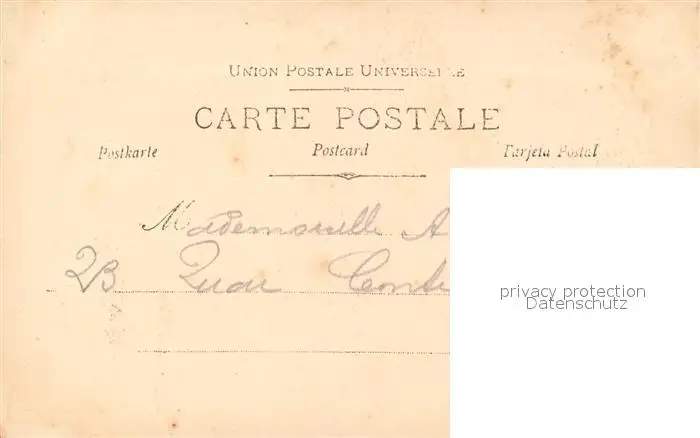 UNION POSTALE UNIVERSELLE
CARTE POSTALE
Postkarte Postcard Tarjeta Postal
Mademoiselle A
2B Quai Conti
privacy protection
Datenschutz